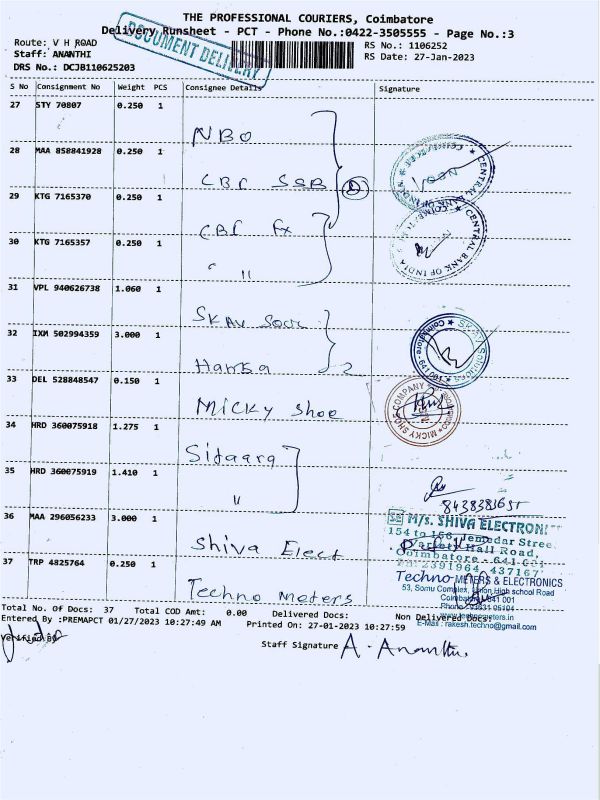 THE PROFESSIONAL COURIERS, Coimbatore
Delivery Runsheet - PCT - Phone No.:0422-3505555 - Page No.:3
DOCUMENT DELIVERY
Route: V H ROAD
RS No.: 1106252
Staff: ANANTHI
RS Date: 27-Jan-2023
DRS No.: DCJB110625203
S No Consignment No Weight PCS Consignee Details Signature
27 STY 70807 0.250 1
NBO
28 MAA 858841928 0.250 1
CBI SSB
29 KTG 7165370 0.250 1
CBI Fx
30 KTG 7165357 0.250 1
" 11
CENTRAL BANK OF INDIA
31 VPL 940626738 1.060 1
SKAV
32 IXM 502994359 3.000 1
2
33 DEL 528848547 0.150 1
Micky Shoe
MICKY SHOE COMPANY
34 HRD 360075918 1.275 1
Sitaara
35 HRD 360075919 1.410 1
"
8438381651
36 MAA 296056233 3.000 1
Shiva Elect
M/s. SHIVA ELECTRONI
154 to 166, Jamedar Stree
Variety Hall Road,
Coimbatore - 641 001
PH: 2391964, 437167
37 TRP 4825764 0.250 1
Techno Meters
Techno METERS & ELECTRONICS
53, Somu Complex, Union High school Road
Coimbatore 641 001
Phone : 93631 05104
www.technometers.in
E-Mail : rakesh.techno@gmail.com
Total No. Of Docs: 37 Total COD Amt: 0.00 Delivered Docs: Non Delivered Docs:
Entered By :PREMAPCT 01/27/2023 10:27:49 AM Printed On: 27-01-2023 10:27:59
Verified By
Staff Signature A. Ananthi